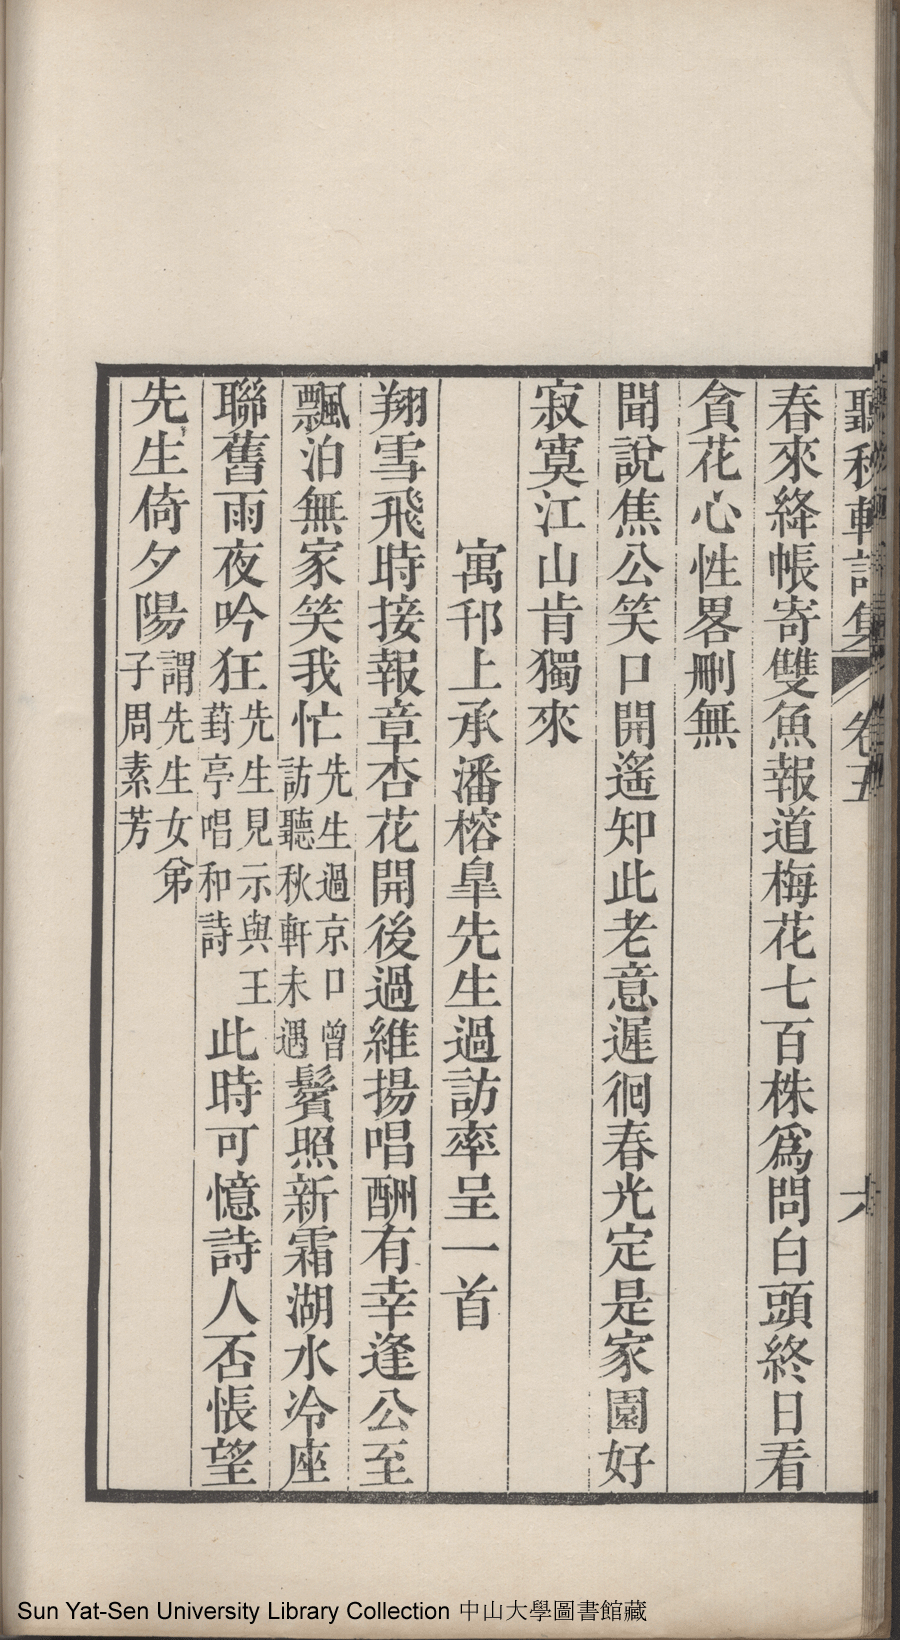 聽秋軒詩集 卷五 六
春來絳帳寄雙魚報道梅花七百株爲問白頭終日看
貪花心性畧刪無
聞說焦公笑口開遙知此老意遲徊春光定是家園好
寂寞江山肯獨來
寓邗上承潘榕臯先生過訪率呈一首
翔雪飛時接報章杏花開後過維揚唱酬有幸逢公至
飄泊無家笑我忙先生過京口曾訪聽秋軒未遇鬢照新霜湖水冷座
聯舊雨夜吟狂先生見示與王葑亭唱和詩此時可憶詩人否悵望
先生倚夕陽謂先生女弟子周素芳
Sun Yat-Sen University Library Collection 中山大學圖書館藏